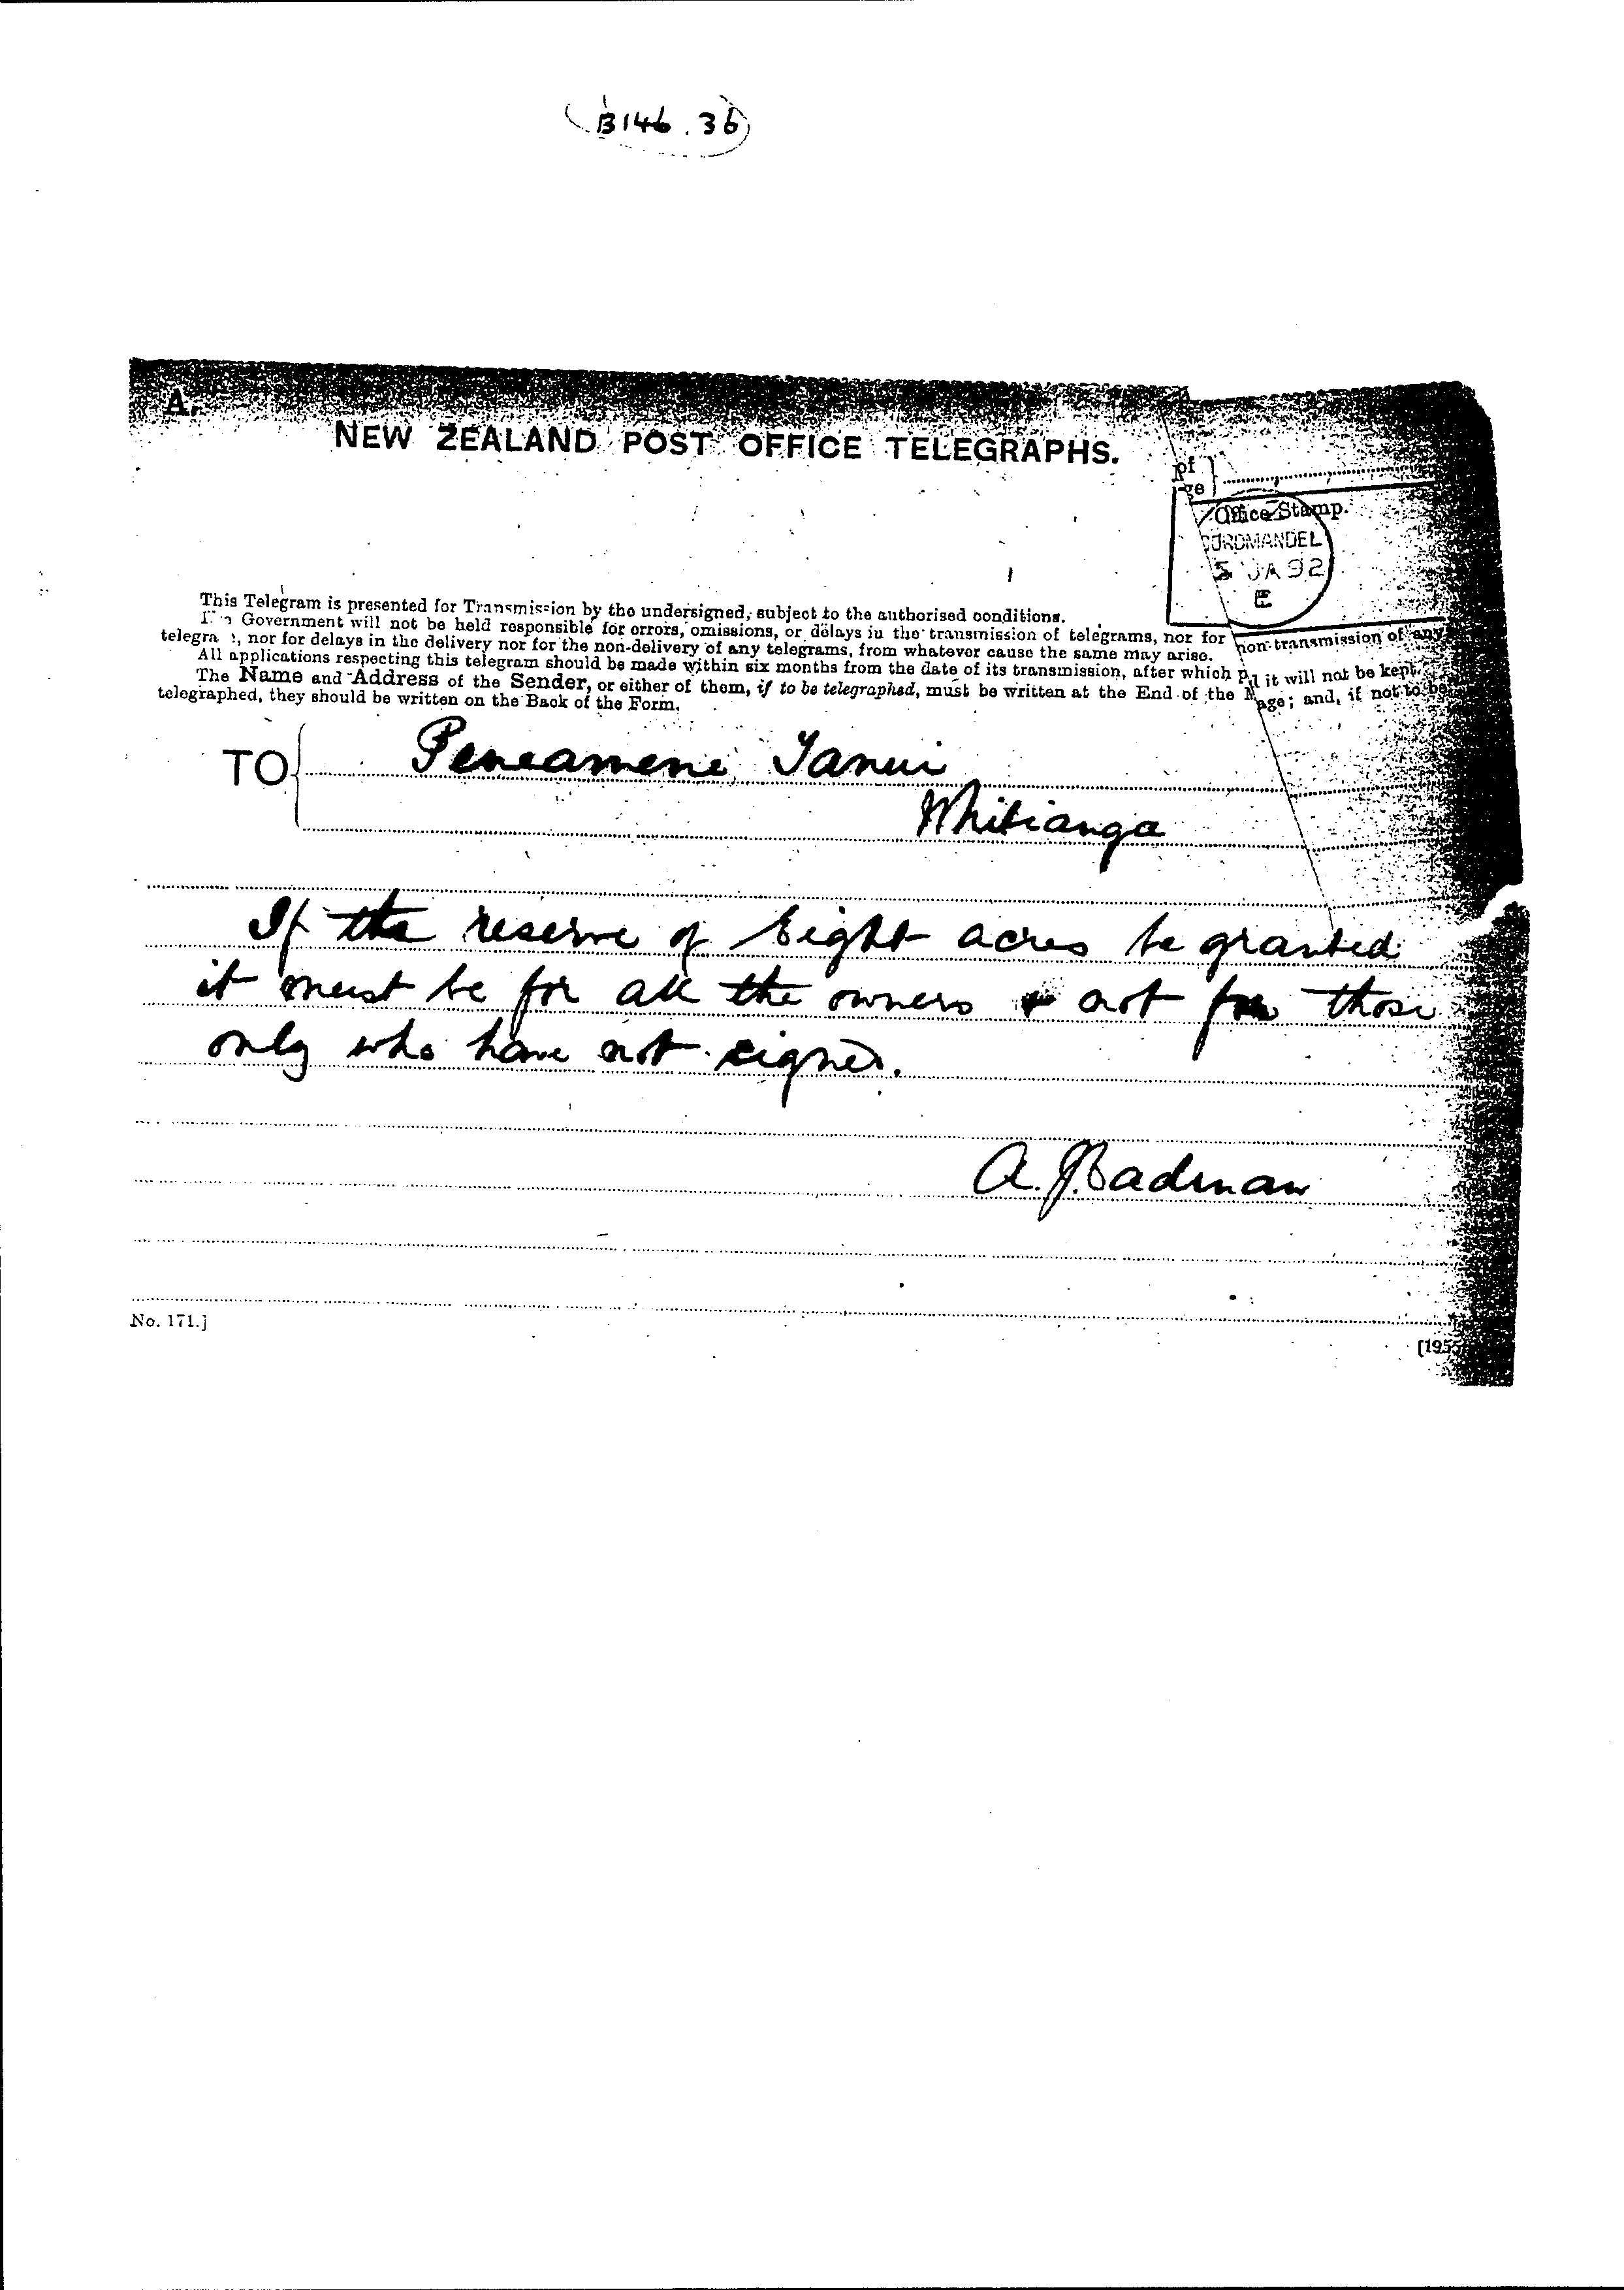 B146.36
A.
NEW ZEALAND POST OFFICE TELEGRAPHS.
Office Stamp.
COROMANDEL
5 JA 92
E
This Telegram is presented for Transmission by the undersigned, subject to the authorised conditions.
Government will not be held responsible for errors, omissions, or delays in the transmission of telegrams, nor for non-transmission of any
telegra , nor for delays in the delivery nor for the non-delivery of any telegrams, from whatever cause the same may arise.
All applications respecting this telegram should be made within six months from the date of its transmission, after which it will not be kept.
The Name and Address of the Sender, or either of them, if to be telegraphed, must be written at the End of the age; and, if not to be
telegraphed, they should be written on the Back of the Form.
TO Peneamene Tanui
Whitianga
If the reserve of Eight acres be granted
it must be for all the owners & not for those
only who have not signed.
A. J. Cadman
No. 171.]